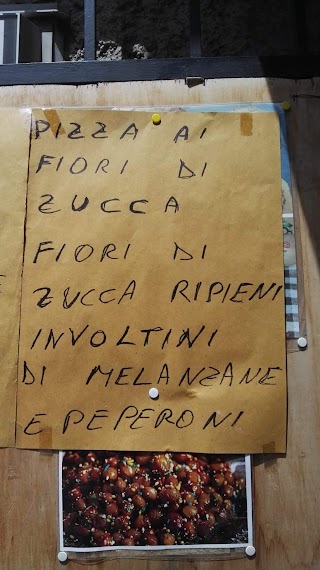 PIZZA AI
FIORI DI
ZUCCA
FIORI DI
ZUCCA RIPIENI
INVOLTINI
DI MELANZANE
E PEPERONI